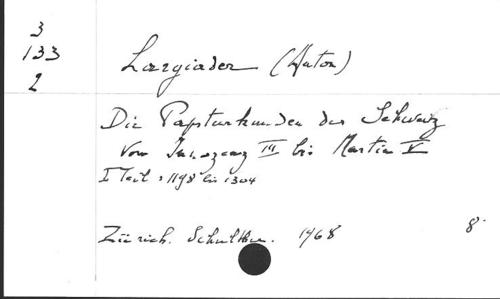 3
133
2
Largiader (Anton)
Die Papsturkunden der Schweiz
von Innozenz III bis Martin V
I Teil : 1198 bis 1304
Zürich. Schulthess. 1968 8°